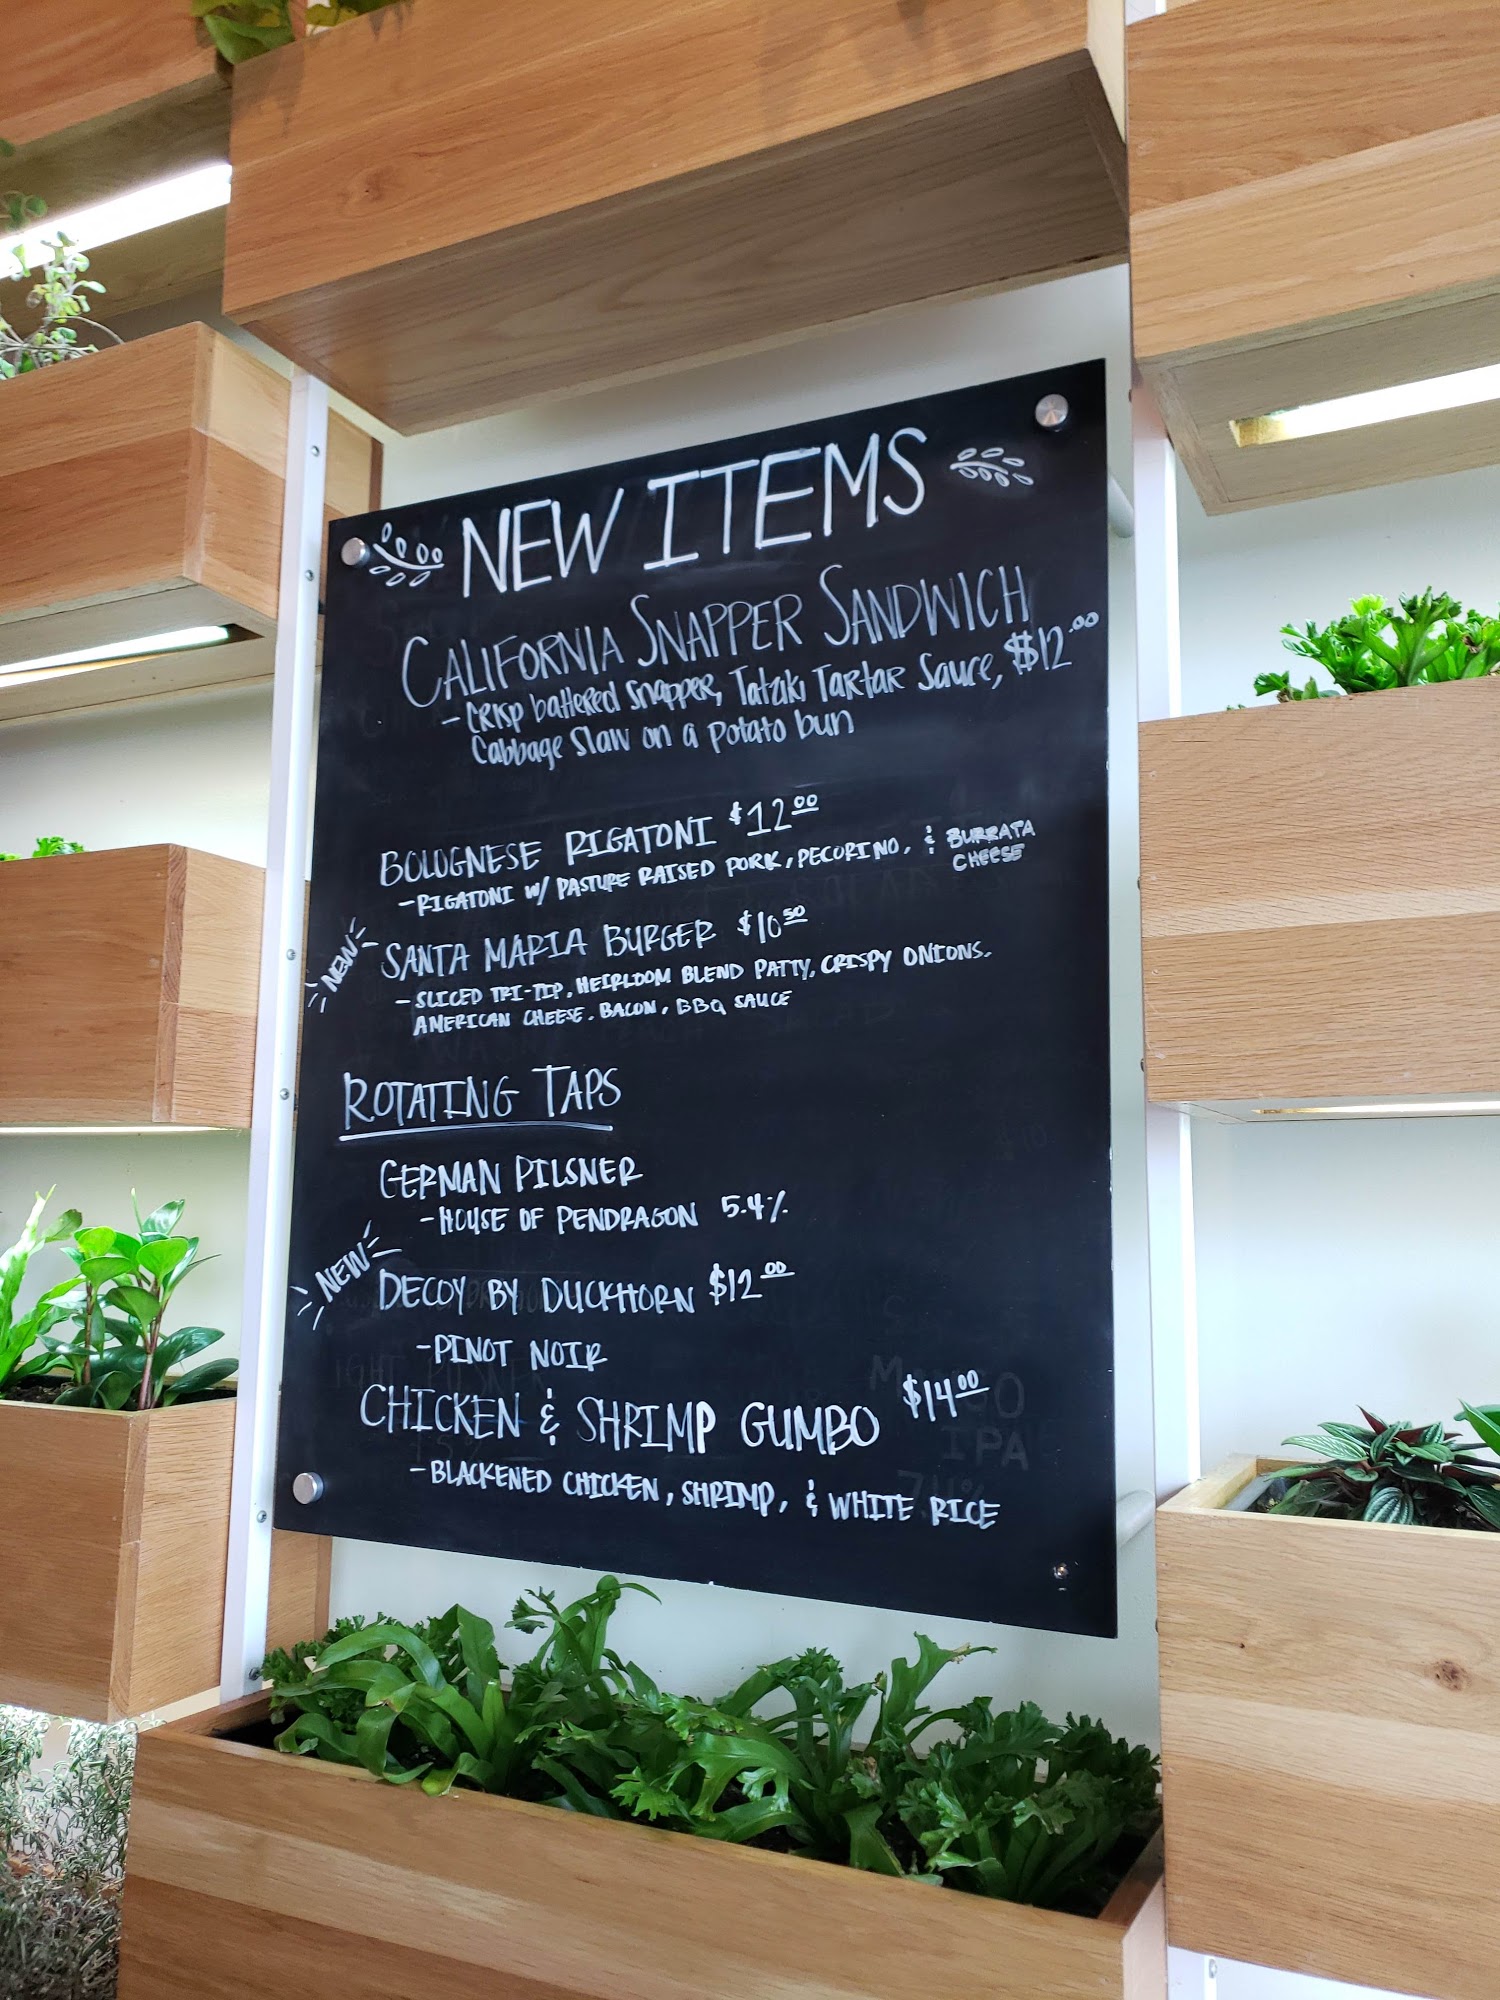 NEW ITEMS
CALIFORNIA SNAPPER SANDWICH
- Crisp battered snapper, Tatziki Tartar Sauce, $12.00
Cabbage Slaw on a potato bun
BOLOGNESE RIGATONI $12.00
- RIGATONI W/ PASTURE RAISED PORK, PECORINO, & BURRATA
CHEESE
NEW
SANTA MARIA BURGER $10.50
- SLICED TRI-TIP, HEIRLOOM BLEND PATTY, CRISPY ONIONS.
AMERICAN CHEESE. BACON, BBQ SAUCE
ROTATING TAPS
GERMAN PILSNER
- HOUSE OF PENDRAGON 5.4%
NEW
DECOY BY DUCKHORN $12.00
- PINOT NOIR
CHICKEN & SHRIMP GUMBO $14.00
- BLACKENED CHICKEN, SHRIMP, & WHITE RICE